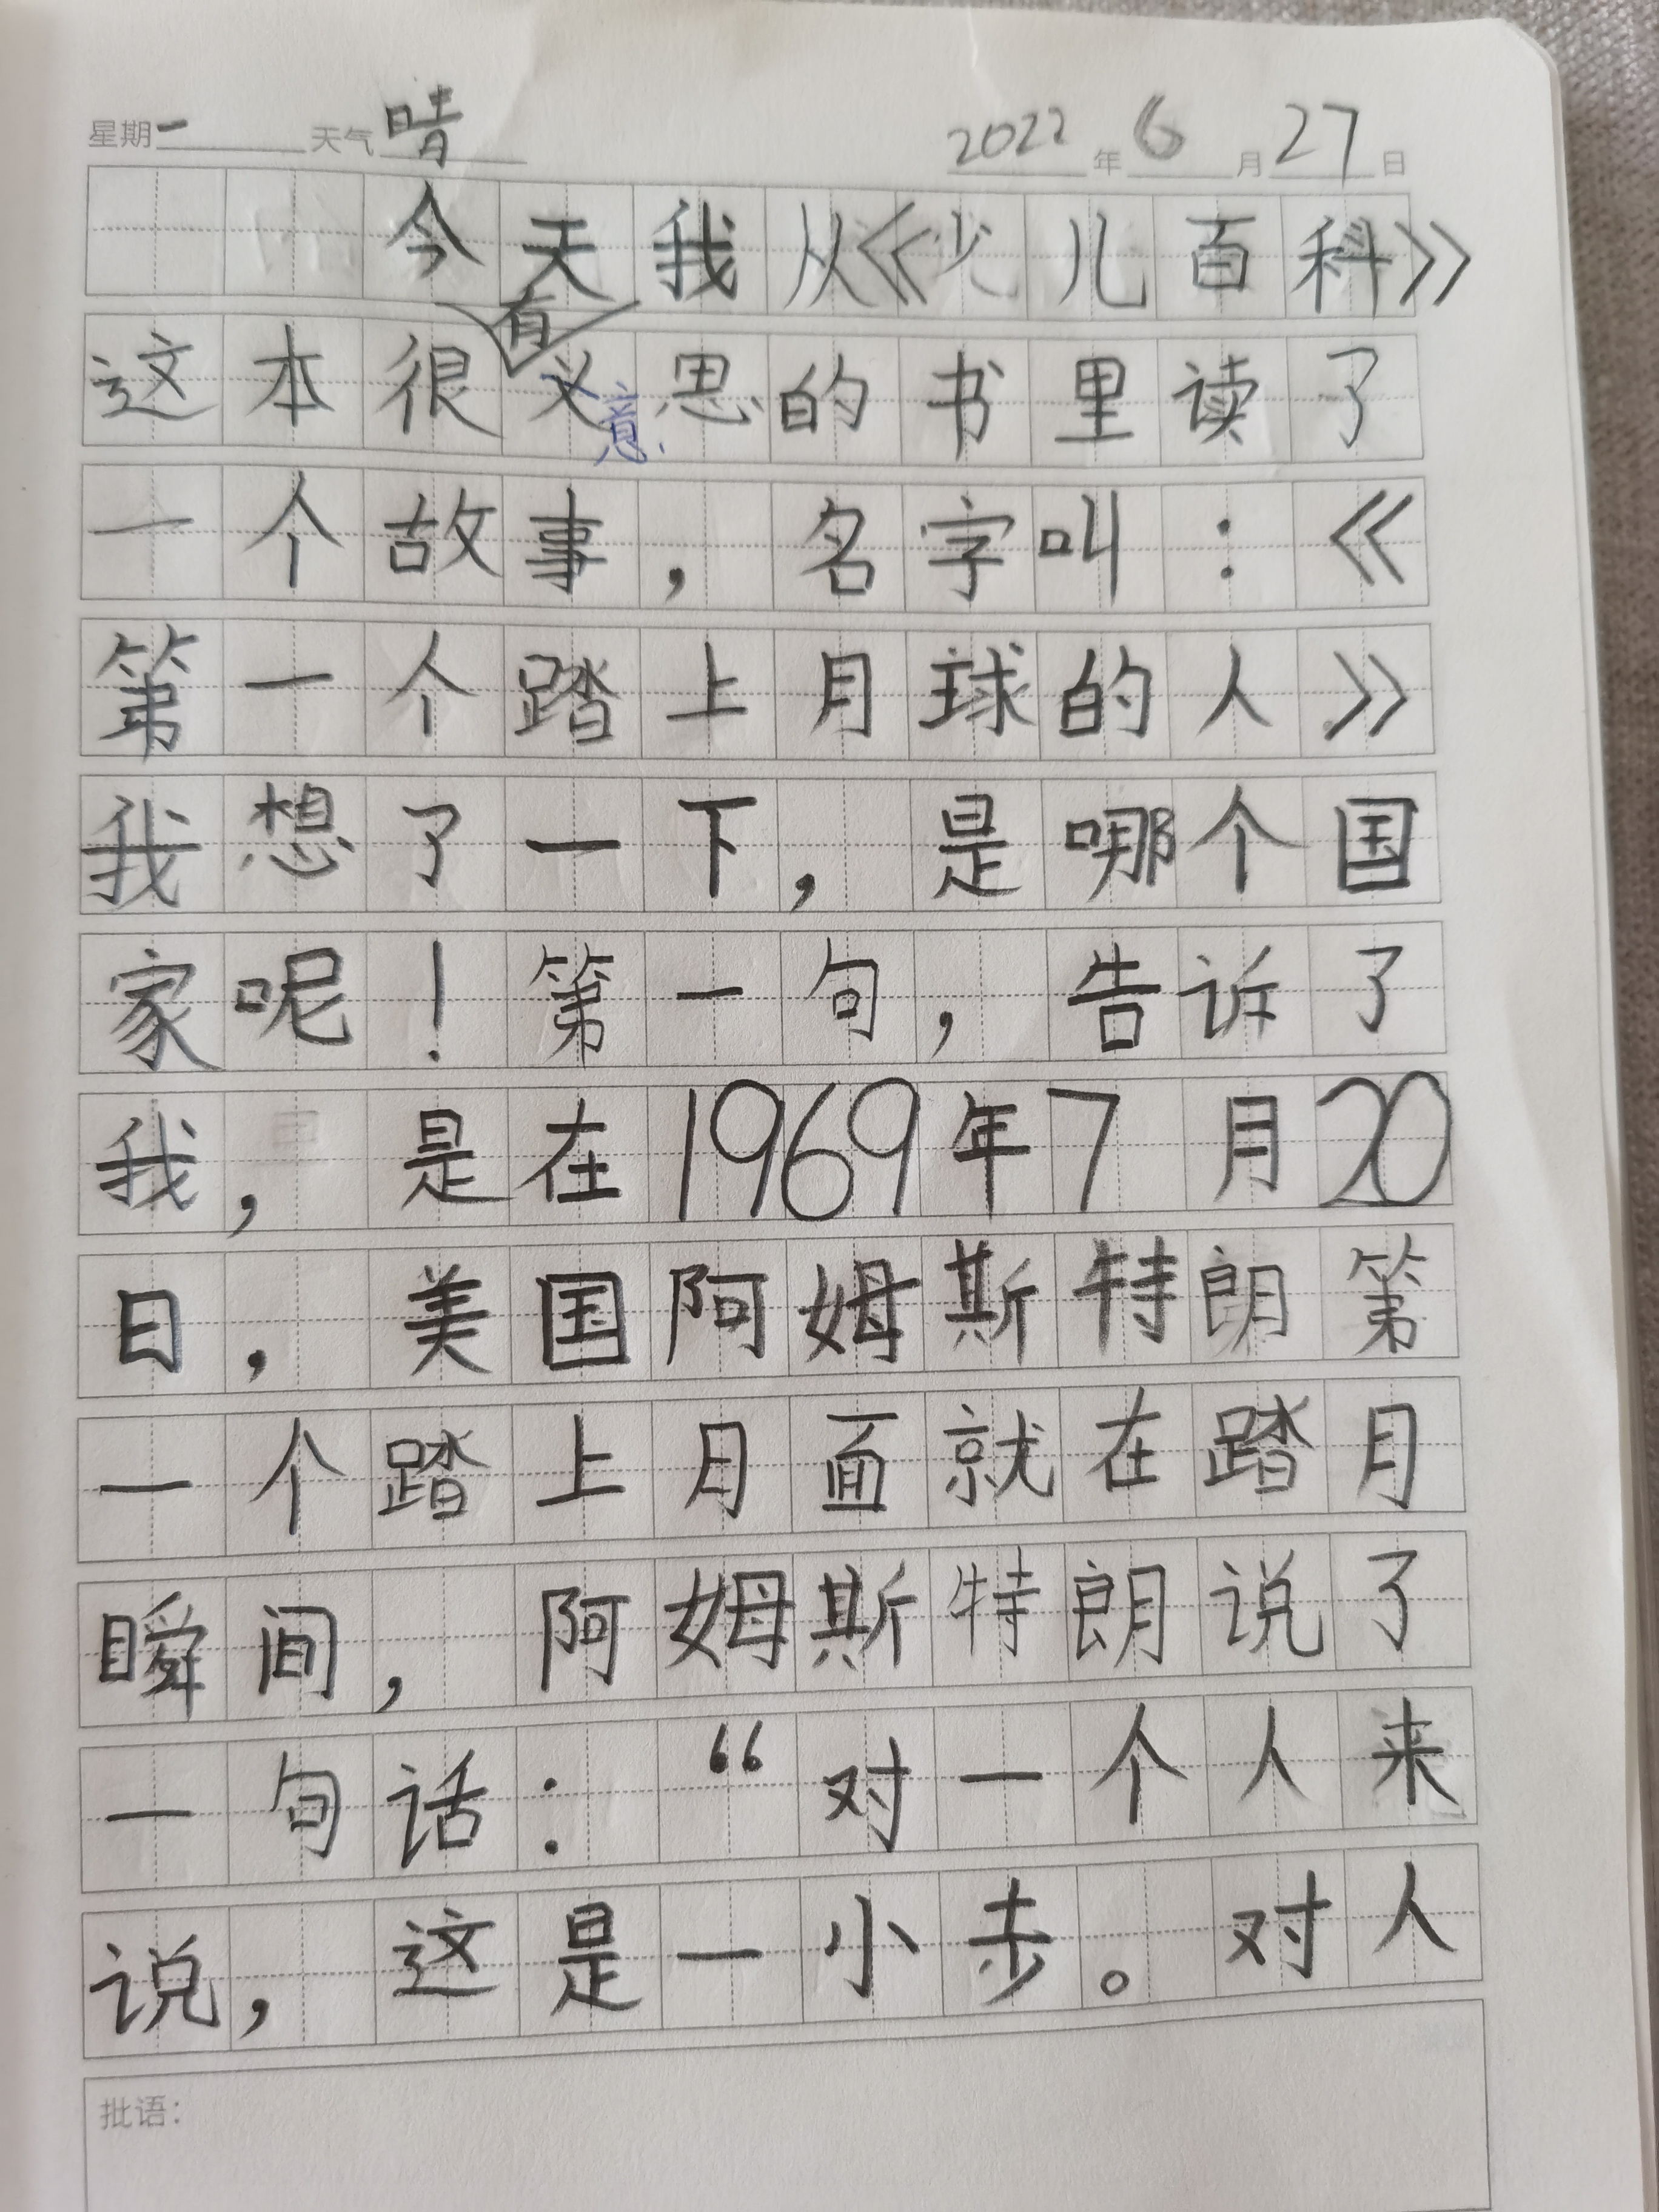 星期一 天气 晴 2022年6月27日
今天我从《少儿百科》
这本很有义意思的书里读了
一个故事，名字叫：《
第一个踏上月球的人》
我想了一下，是哪个国
家呢！第一句，告诉了
我，是在1969年7月20
日，美国阿姆斯特朗第
一个踏上月面就在踏月
瞬间，阿姆斯特朗说了
一句话：“对一个人来
说，这是一小步。对人
批语：